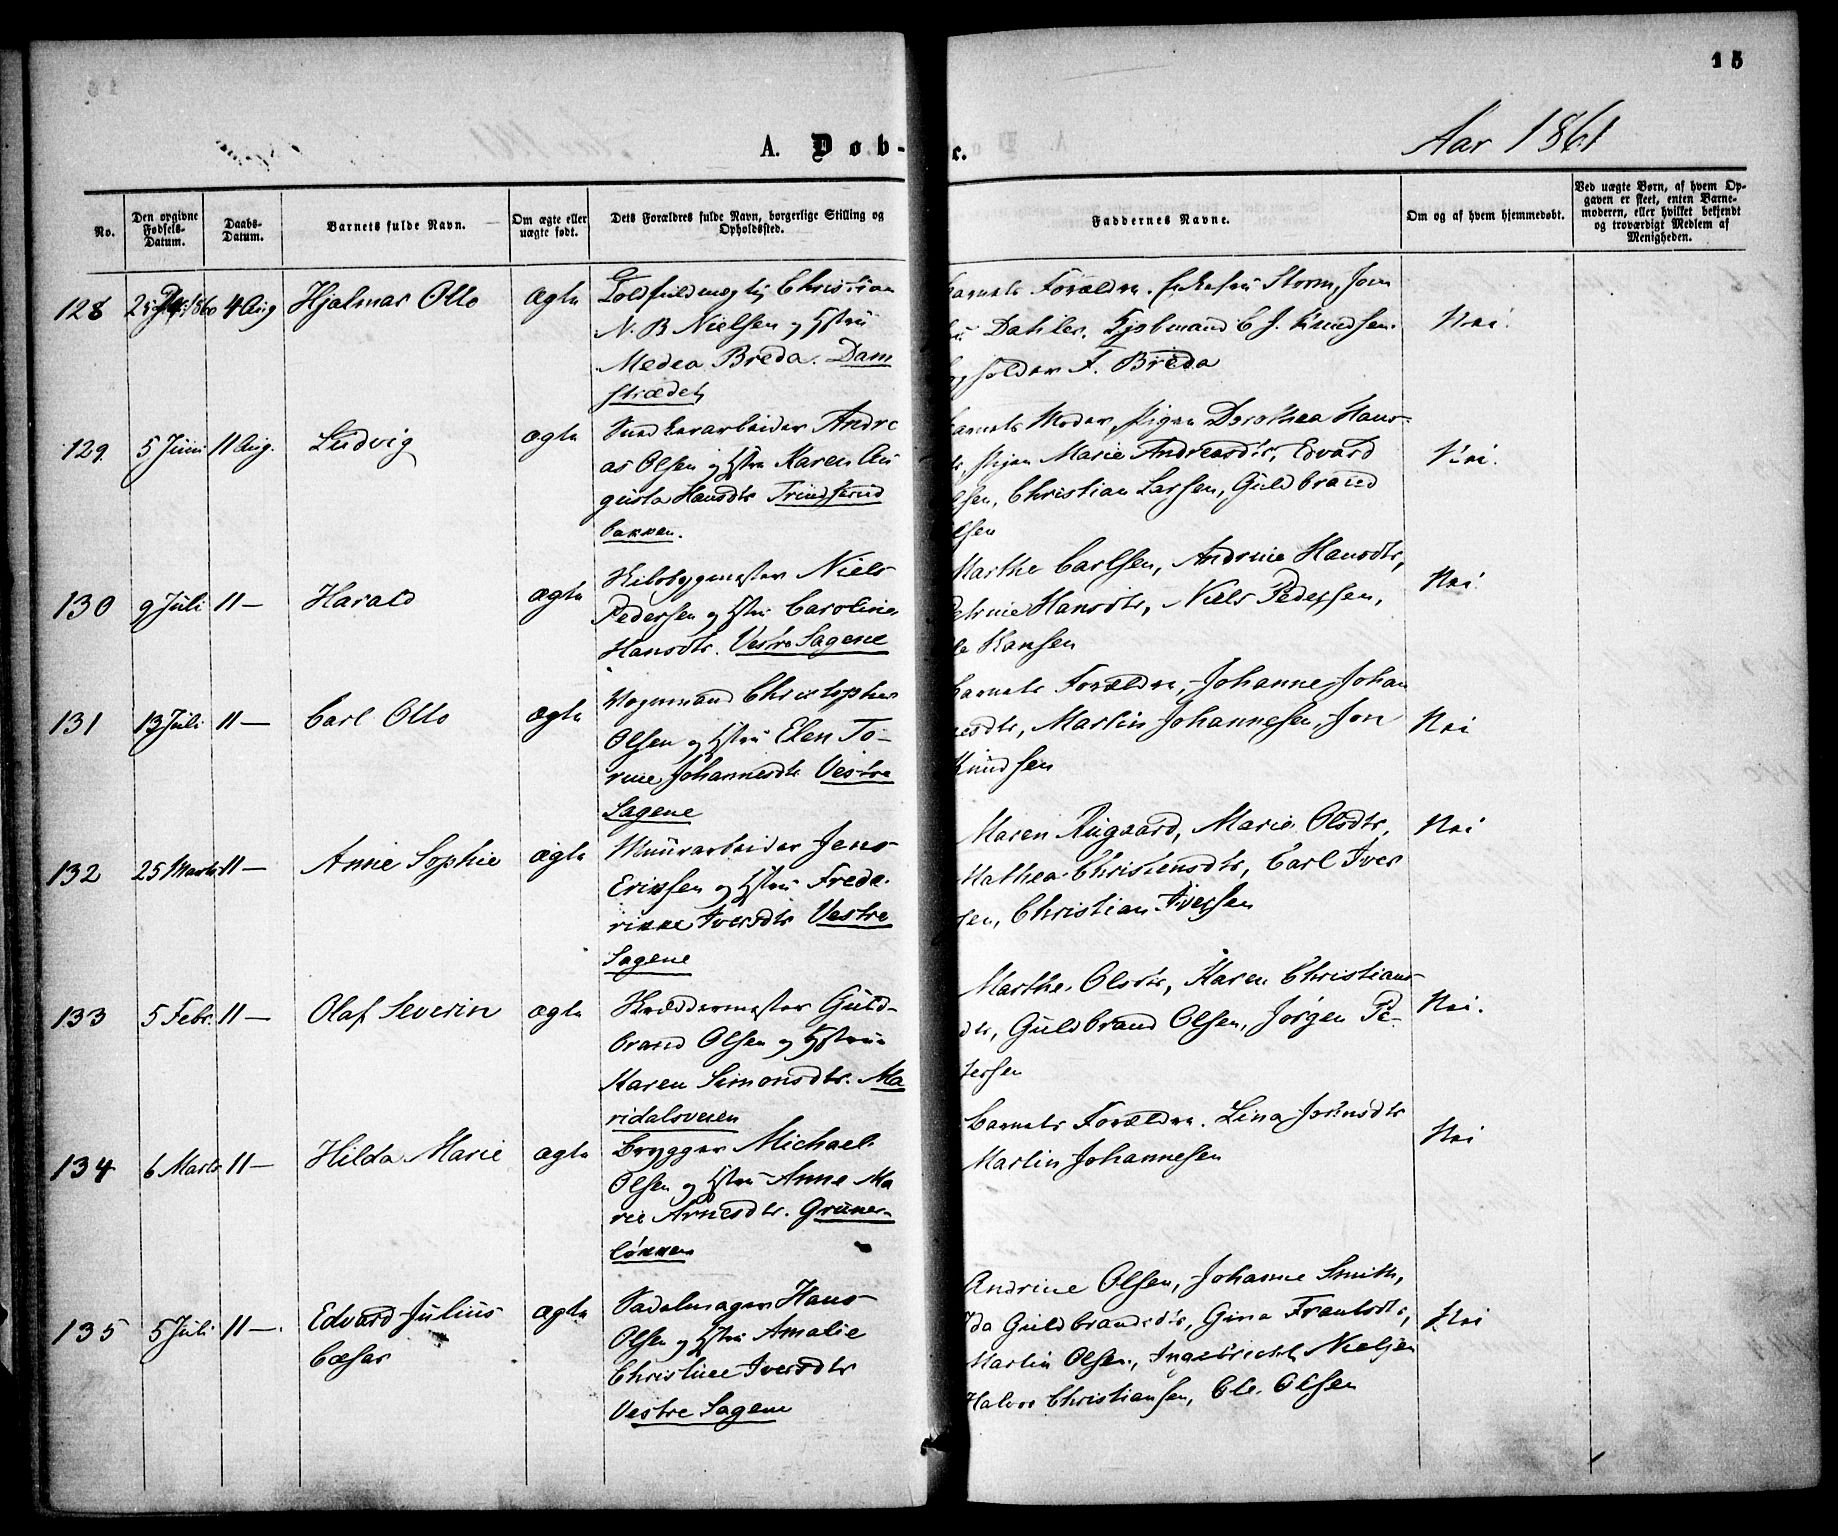 15
Aar 1861
A. Døb-
c.
No.
Den opgivne Fødsels-Datum.
Daabs-Datum.
Barnets fulde Navn.
Om ægte eller uægte født.
Dets Forældres fulde Navn, borgerlige Stilling og Opholdssted.
Faddernes Navne.
Om og af hvem hjemmedøbt.
Ved uægte Børn, af hvem Op-
gaven er skeet, enten Barne-
moderen, eller hvilket bekjendt
og troværdigt Medlem af
Menigheden.
128 4 Aug Hjalmar Otto ægte
Toldfuldmægtig Christian
N. B Nielsen og Hstru
Medea Breda. Dam
strædet
Barnets Forældre. Storm, Jom
Dahler. Kjøbmand C J. Knudsen.
F. Breda
Nei.
129. 5 Juni 11 Aug. Ludvig ægte
Snedkerarbeider Andre
as Olsen og Hstru Karen Au
gusta Hansdtr Trindserud
bakken.
Barnets Moder, Pigen Dorothea Hans-
Pigen Marie Andreasdtr, Edvard
lsen, Christian Larsen, Guldbrand
lsen
Nei.
130 9 Juli 11 — Harald ægte
Skibsbygmester Niels
Pedersen og Hstru Caroline
Hansdtr. Vestre Sagene
Marthe Carlsen, Andrine Hansdtr,
Petrine Hansdtr, Niels Pedersen,
le Hansen
Nei.
131 13 Juli 11 — Carl Otto ægte
Vognmand Christopher
Olsen og Hstru Elen To-
rine Johannesdtr Vestre
Sagene
Barnets Forældre, Johanne Johan
nesdtr, Martin Johannesen, Jon
Knudsen
Nei
132 25 Marts 11 — Anne Sophie ægte
Muurarbeider Jens
Eriksen og Hstru Frede-
rikke Iversdtr Vestre
Sagene
Maren Rugaard, Marie Olsdtr,
Mathea Christensdtr, Carl Iver
sen, Christian Iversen
Nei
133 5 Febr. 11 — Olaf Severin ægte
Skræddermester Guld-
brand Olsen og Hstrue
Karen Simonsdtr. Ma
ridalsveien
Marthe Olsdtr, Karen Christians
dtr, Guldbrand Olsen, Jørgen Pe-
tersen
Nei.
134 6 Marts 11 — Hilda Marie ægte
Brygger Michael
Olsen og Hstru Anne Ma
rie Arnesdtr. Grüner-
løkken
Barnets Forældre. Lina Johnsdtr
Martin Johannesen
Nei
135 5 Juli 11 —. Edvard Julius
Cæsar
ægte
Sadelmager Hans
Olsen og Hstru Amalie
Christine Iversdtr
Vestre Sagene
Andrine Olsen, Johanne Smith,
Ida Guldbrandsdtr, Gina Frantsdtr,
Martin Olsen, Ingebricht Nielsen
Halvor Christiansen, Ole Olsen
Nei